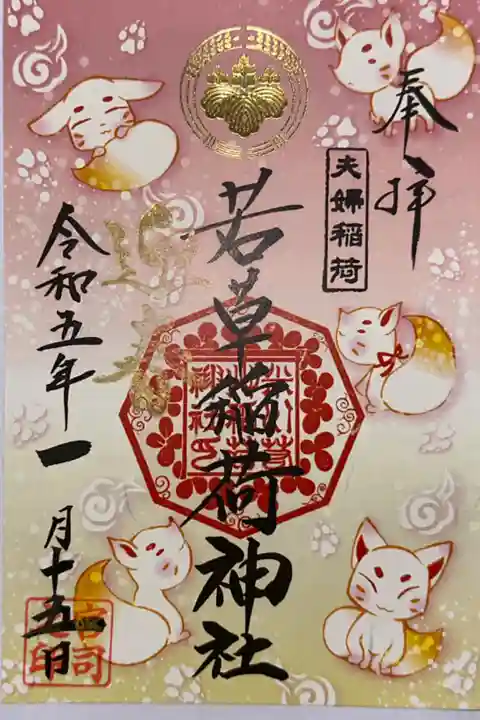 奉拝
夫婦稲荷
若草稲荷神社
迎春
令和五年一月十五日
宮司之印